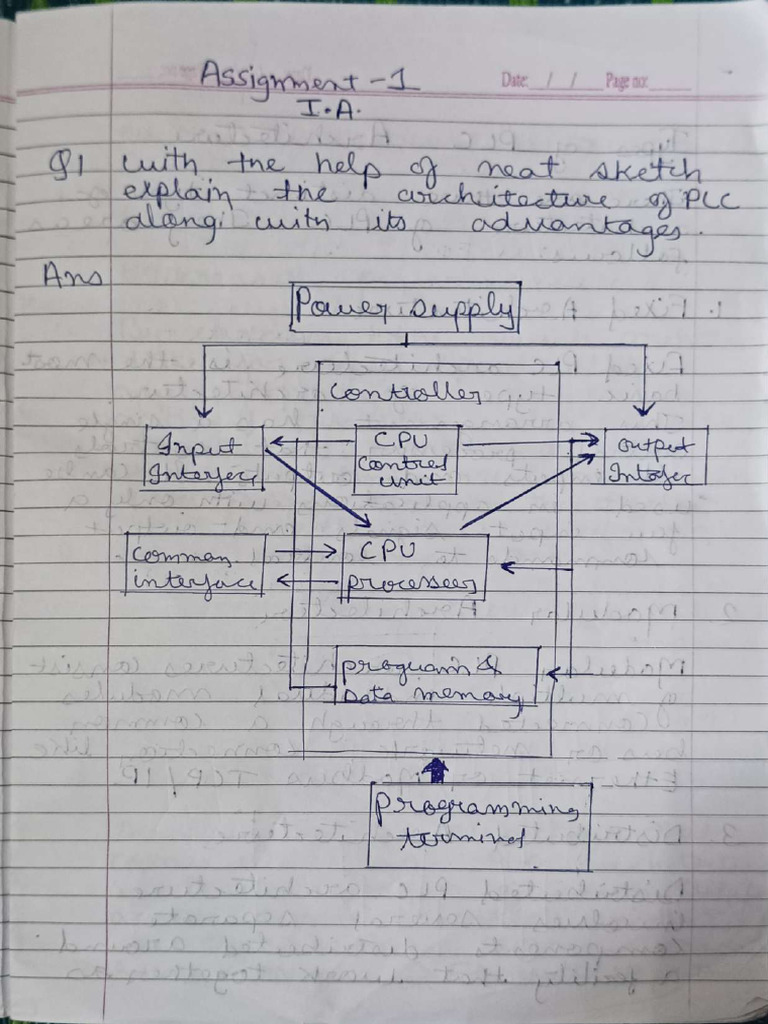 Assignment - 1
Date: / / Page no:
I.A.
Q1 with the help of neat sketch
explain the architecture of PLC
along with its advantages.
Ans
Power supply
Controller
Input
Interface
CPU
Control
unit
output
Interface
Common
interface
CPU
processers
program &
Data memory
Programming
terminal